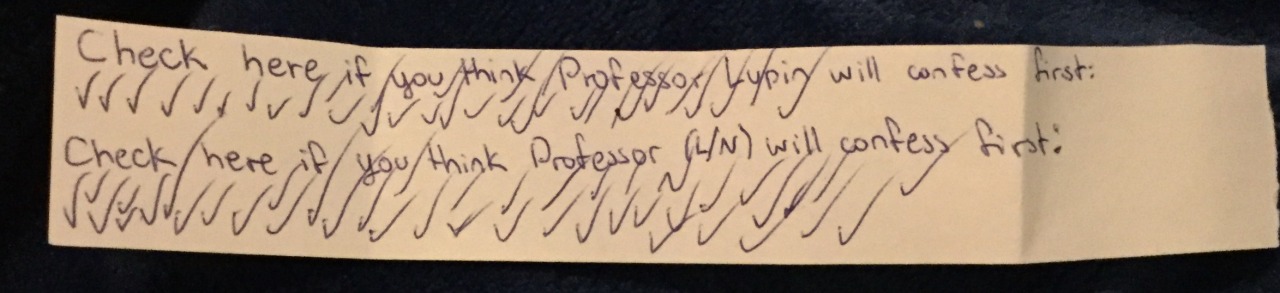 Check here if you think Professor Lupin will confess first:
Check here if you think Professor (L/N) will confess first: